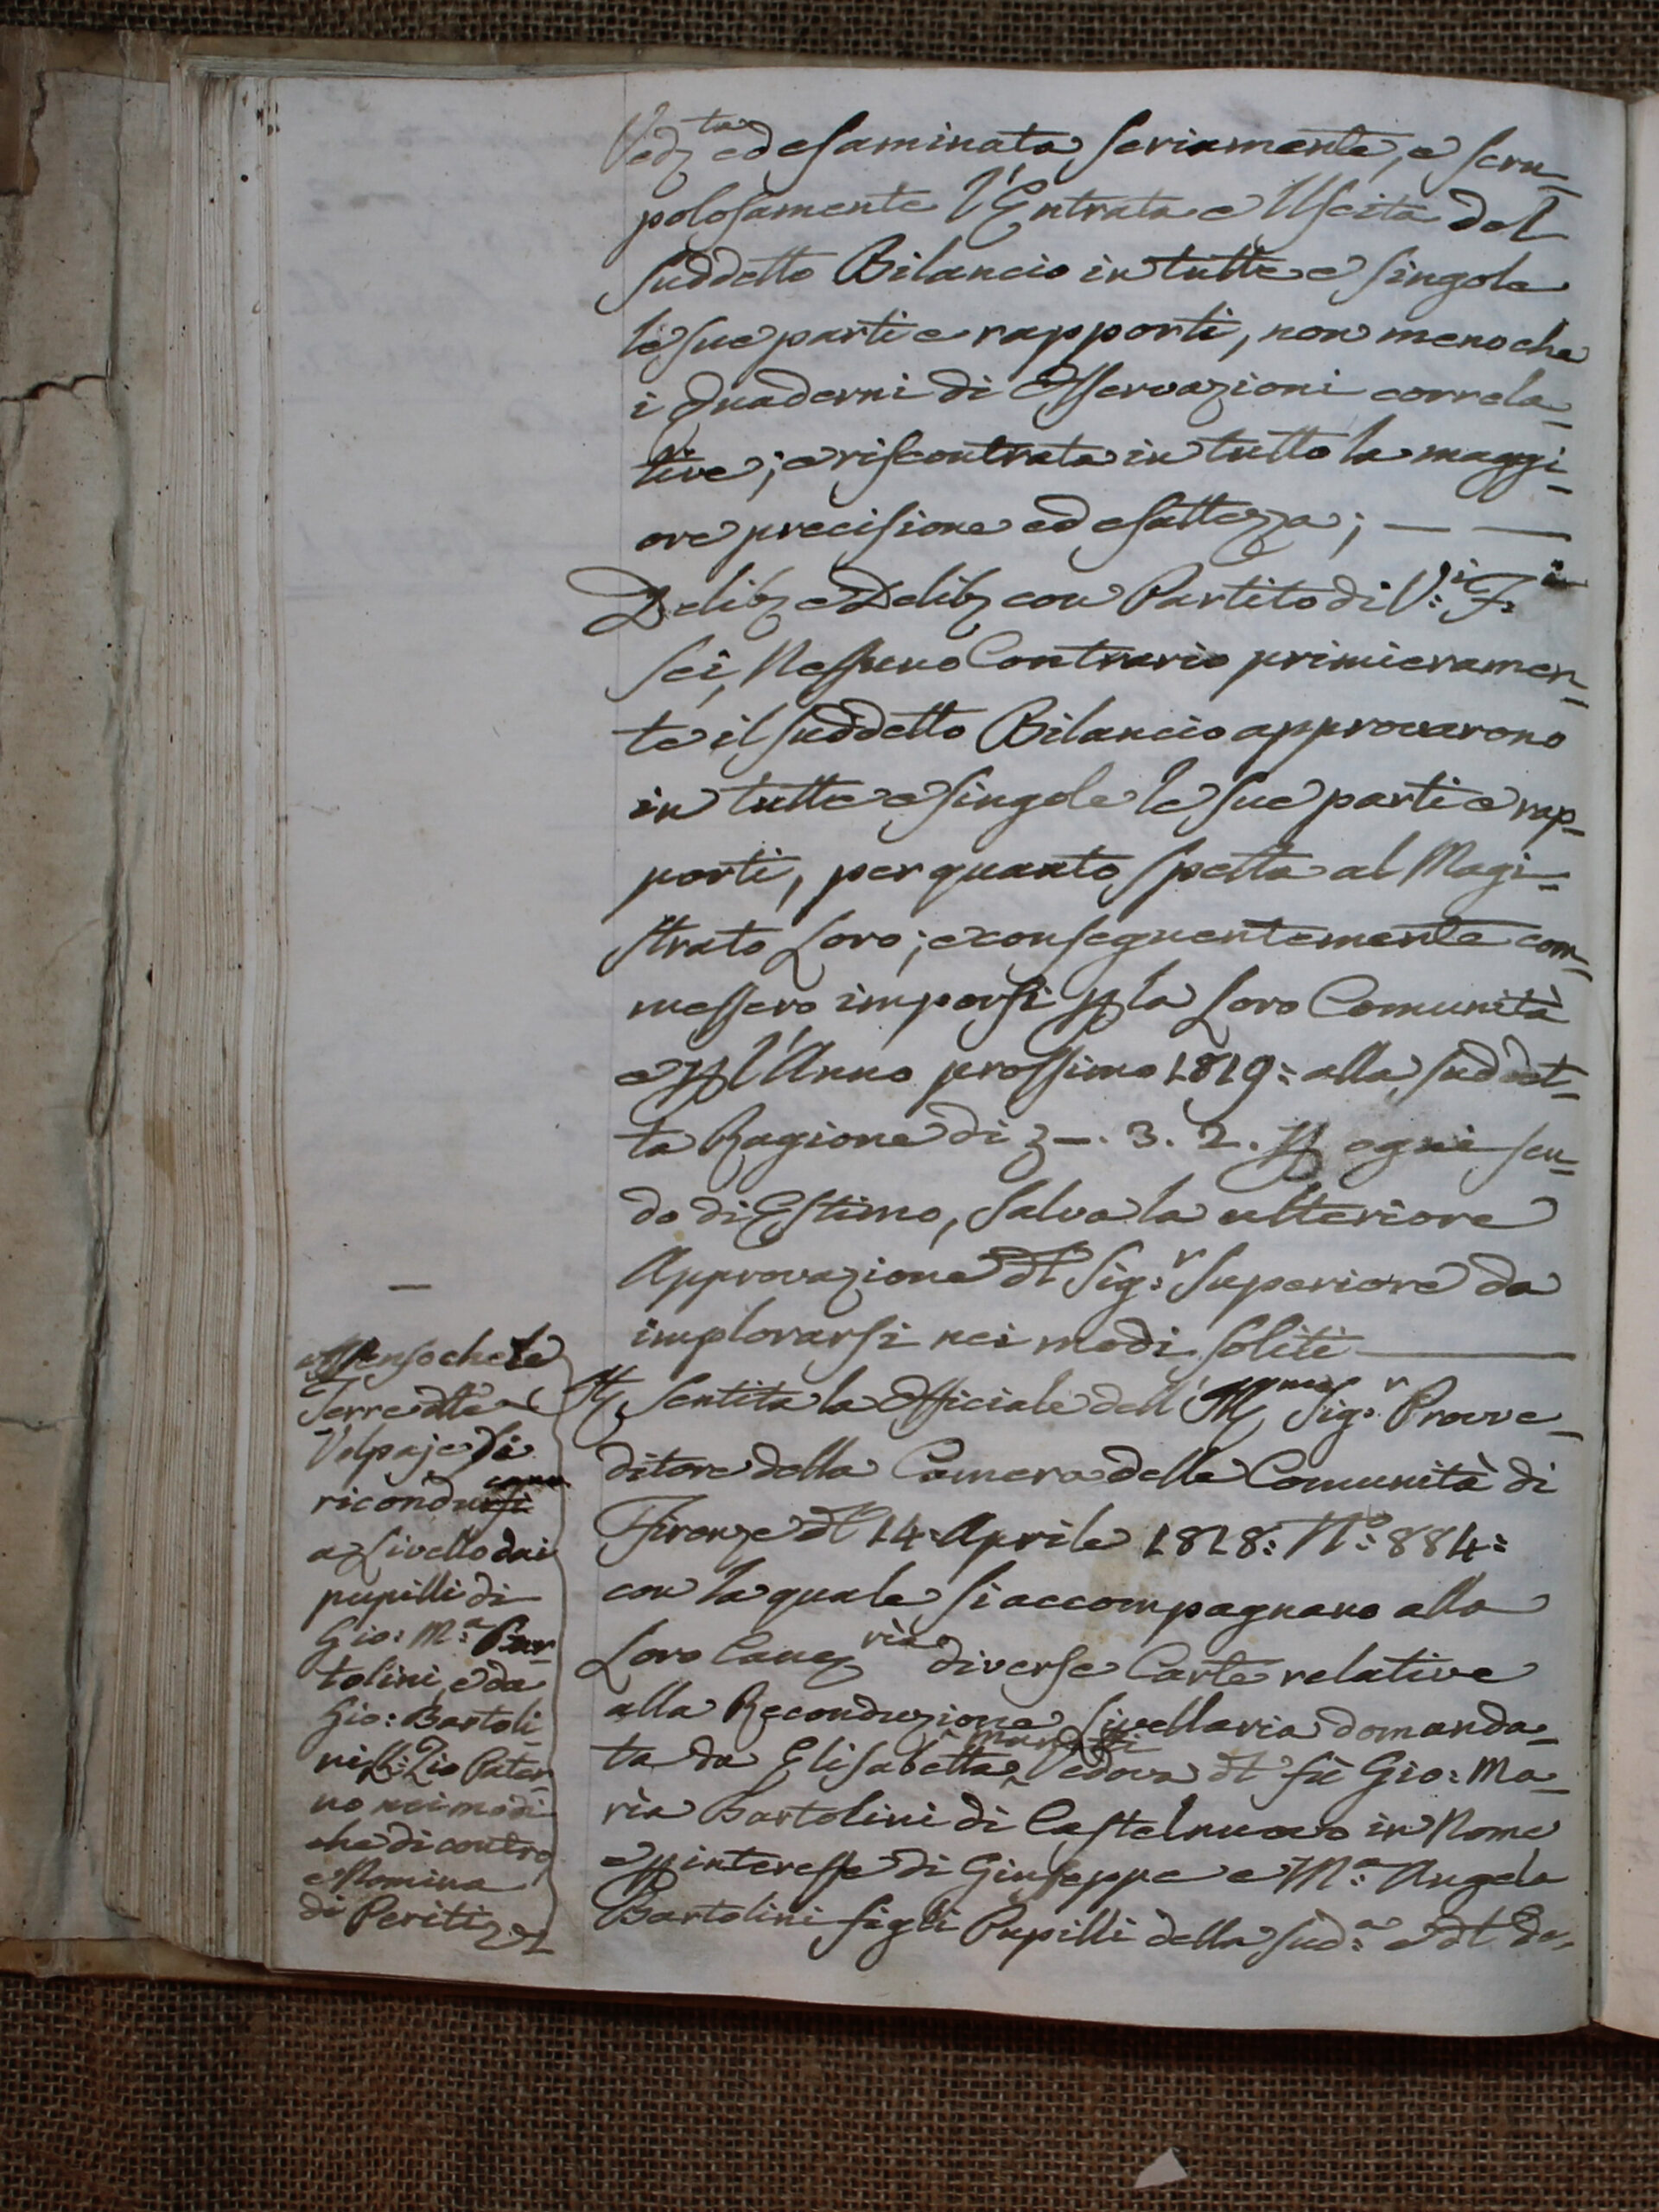 Ved.ta ed esaminata seriamente, e scru-
polosamente l'Entrata e Uscita del
suddetto Bilancio in tutte e singole
le sue parti e rapporti, non meno che
i Quaderni di Osservazioni correla-
tive; e riscontrata in tutto la maggi-
ore precisione ed esattezza; — —
Delib. e Delib. con Partito di V.i F.i
sei, Nessuno Contrario primieramen-
te il suddetto Bilancio approvarono
in tutte e singole le sue parti e rap-
porti, per quanto spetta al Magi-
strato Loro; e conseguentemente com-
messero imporsi p la Loro Comunità
e p l'Anno prossimo 1819: alla suddet-
ta Ragione di —. 3. 2. p ogni scu-
do di Estimo, salva la ulteriore
Approvazione dl Sig:r Superiore da
implorarsi nei modi soliti —
Sentita la Officiale dell' Sig:r Provve-
ditore della Camera delle Comunità di
Firenze dl 14: Aprile 1818: N.o: 884:
con la quale si accompagnano alla
Loro Canc.ria diverse Carte relative
alla Reconduzione Livellaria domanda-
ta da Elisabetta Vedova dl fù Gio: Ma-
ria Bartolini di Castelnuovo in Nome
e p interesse di Giuseppe e M:a Angela
Bartolini figli Pupilli della sud:a e dl de-
Assenso che le
Terre dtte
Volpaje di
ricondursi
a Livello dai
pupilli di
Gio: M:a Bar-
tolini, e da
Gio: Bartoli-
ni Zio Pater-
no nei modi
che di contro
e Nomina
di Periti